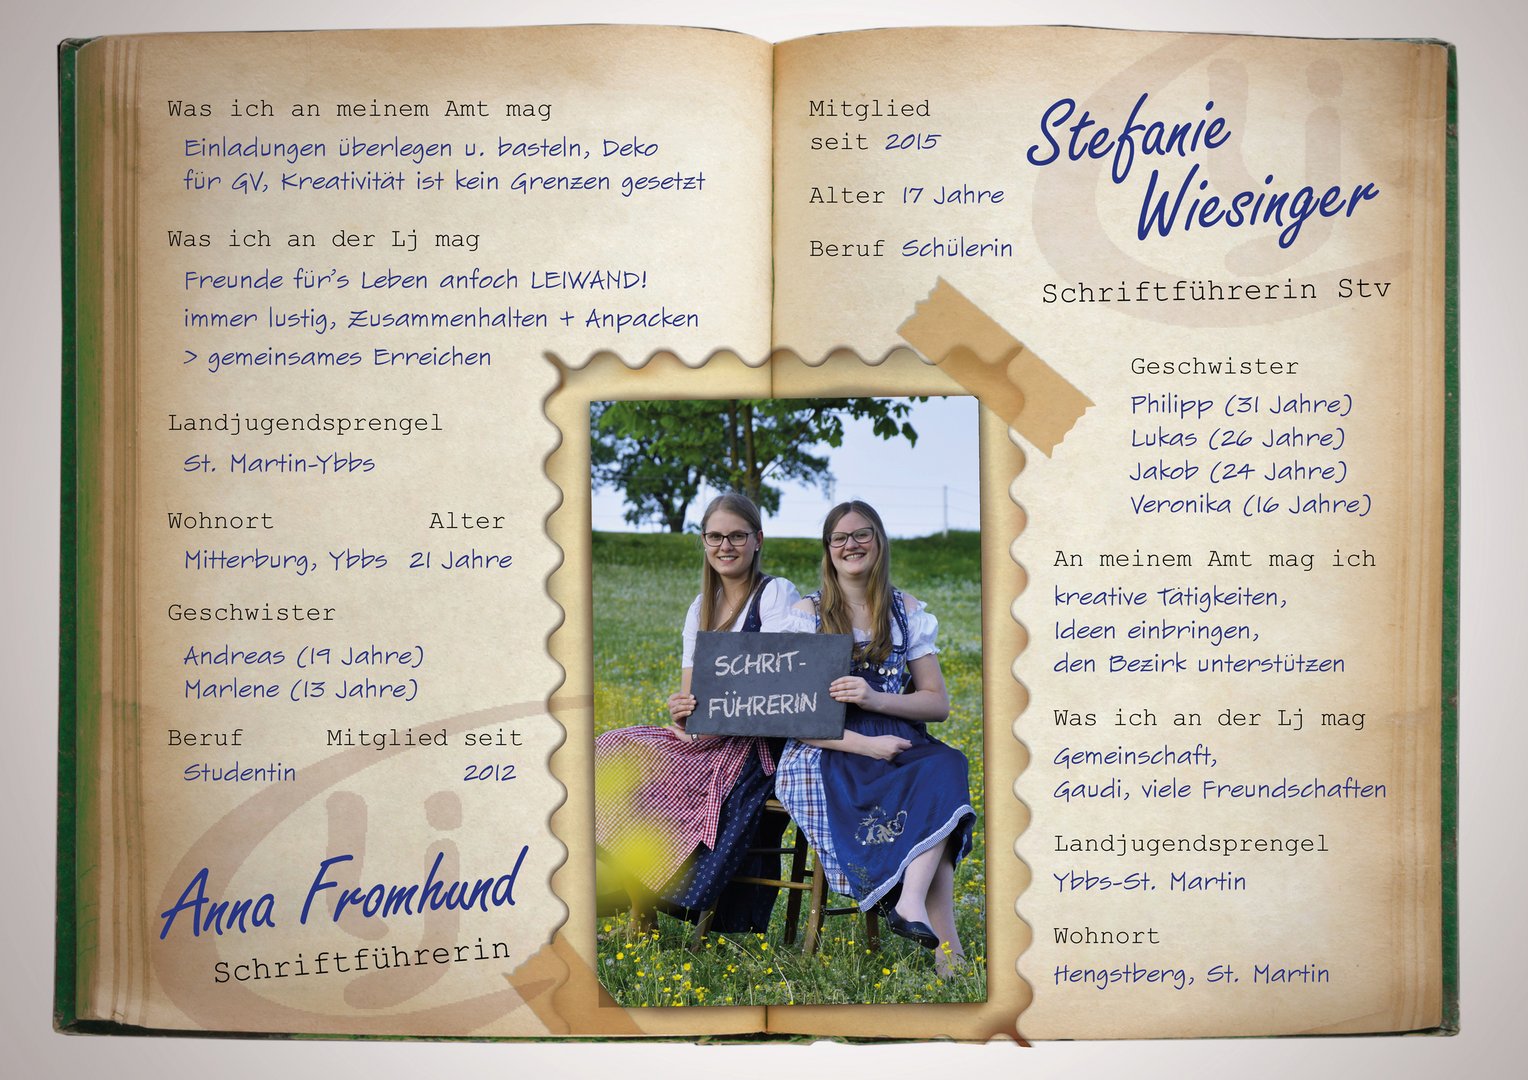 Was ich an meinem Amt mag
Einladungen überlegen u. basteln, Deko
für GV, Kreativität ist kein Grenzen gesetzt
Was ich an der Lj mag
Freunde für's Leben anfoch LEIWAND!
immer lustig, Zusammenhalten + Anpacken
> gemeinsames Erreichen
Landjugendsprengel
St. Martin-Ybbs
Wohnort Alter
Mitterburg, Ybbs 21 Jahre
Geschwister
Andreas (19 Jahre)
Marlene (13 Jahre)
Beruf Mitglied seit
Studentin 2012
Lj
Anna Fromhund
Schriftführerin
SCHRIT-
FÜHRERIN
Mitglied
seit 2015
Alter 17 Jahre
Beruf Schülerin
Lj
Stefanie
Wiesinger
Schriftführerin Stv
Geschwister
Philipp (31 Jahre)
Lukas (26 Jahre)
Jakob (24 Jahre)
Veronika (16 Jahre)
An meinem Amt mag ich
kreative Tätigkeiten,
Ideen einbringen,
den Bezirk unterstützen
Was ich an der Lj mag
Gemeinschaft,
Gaudi, viele Freundschaften
Landjugendsprengel
Ybbs-St. Martin
Wohnort
Hengstberg, St. Martin